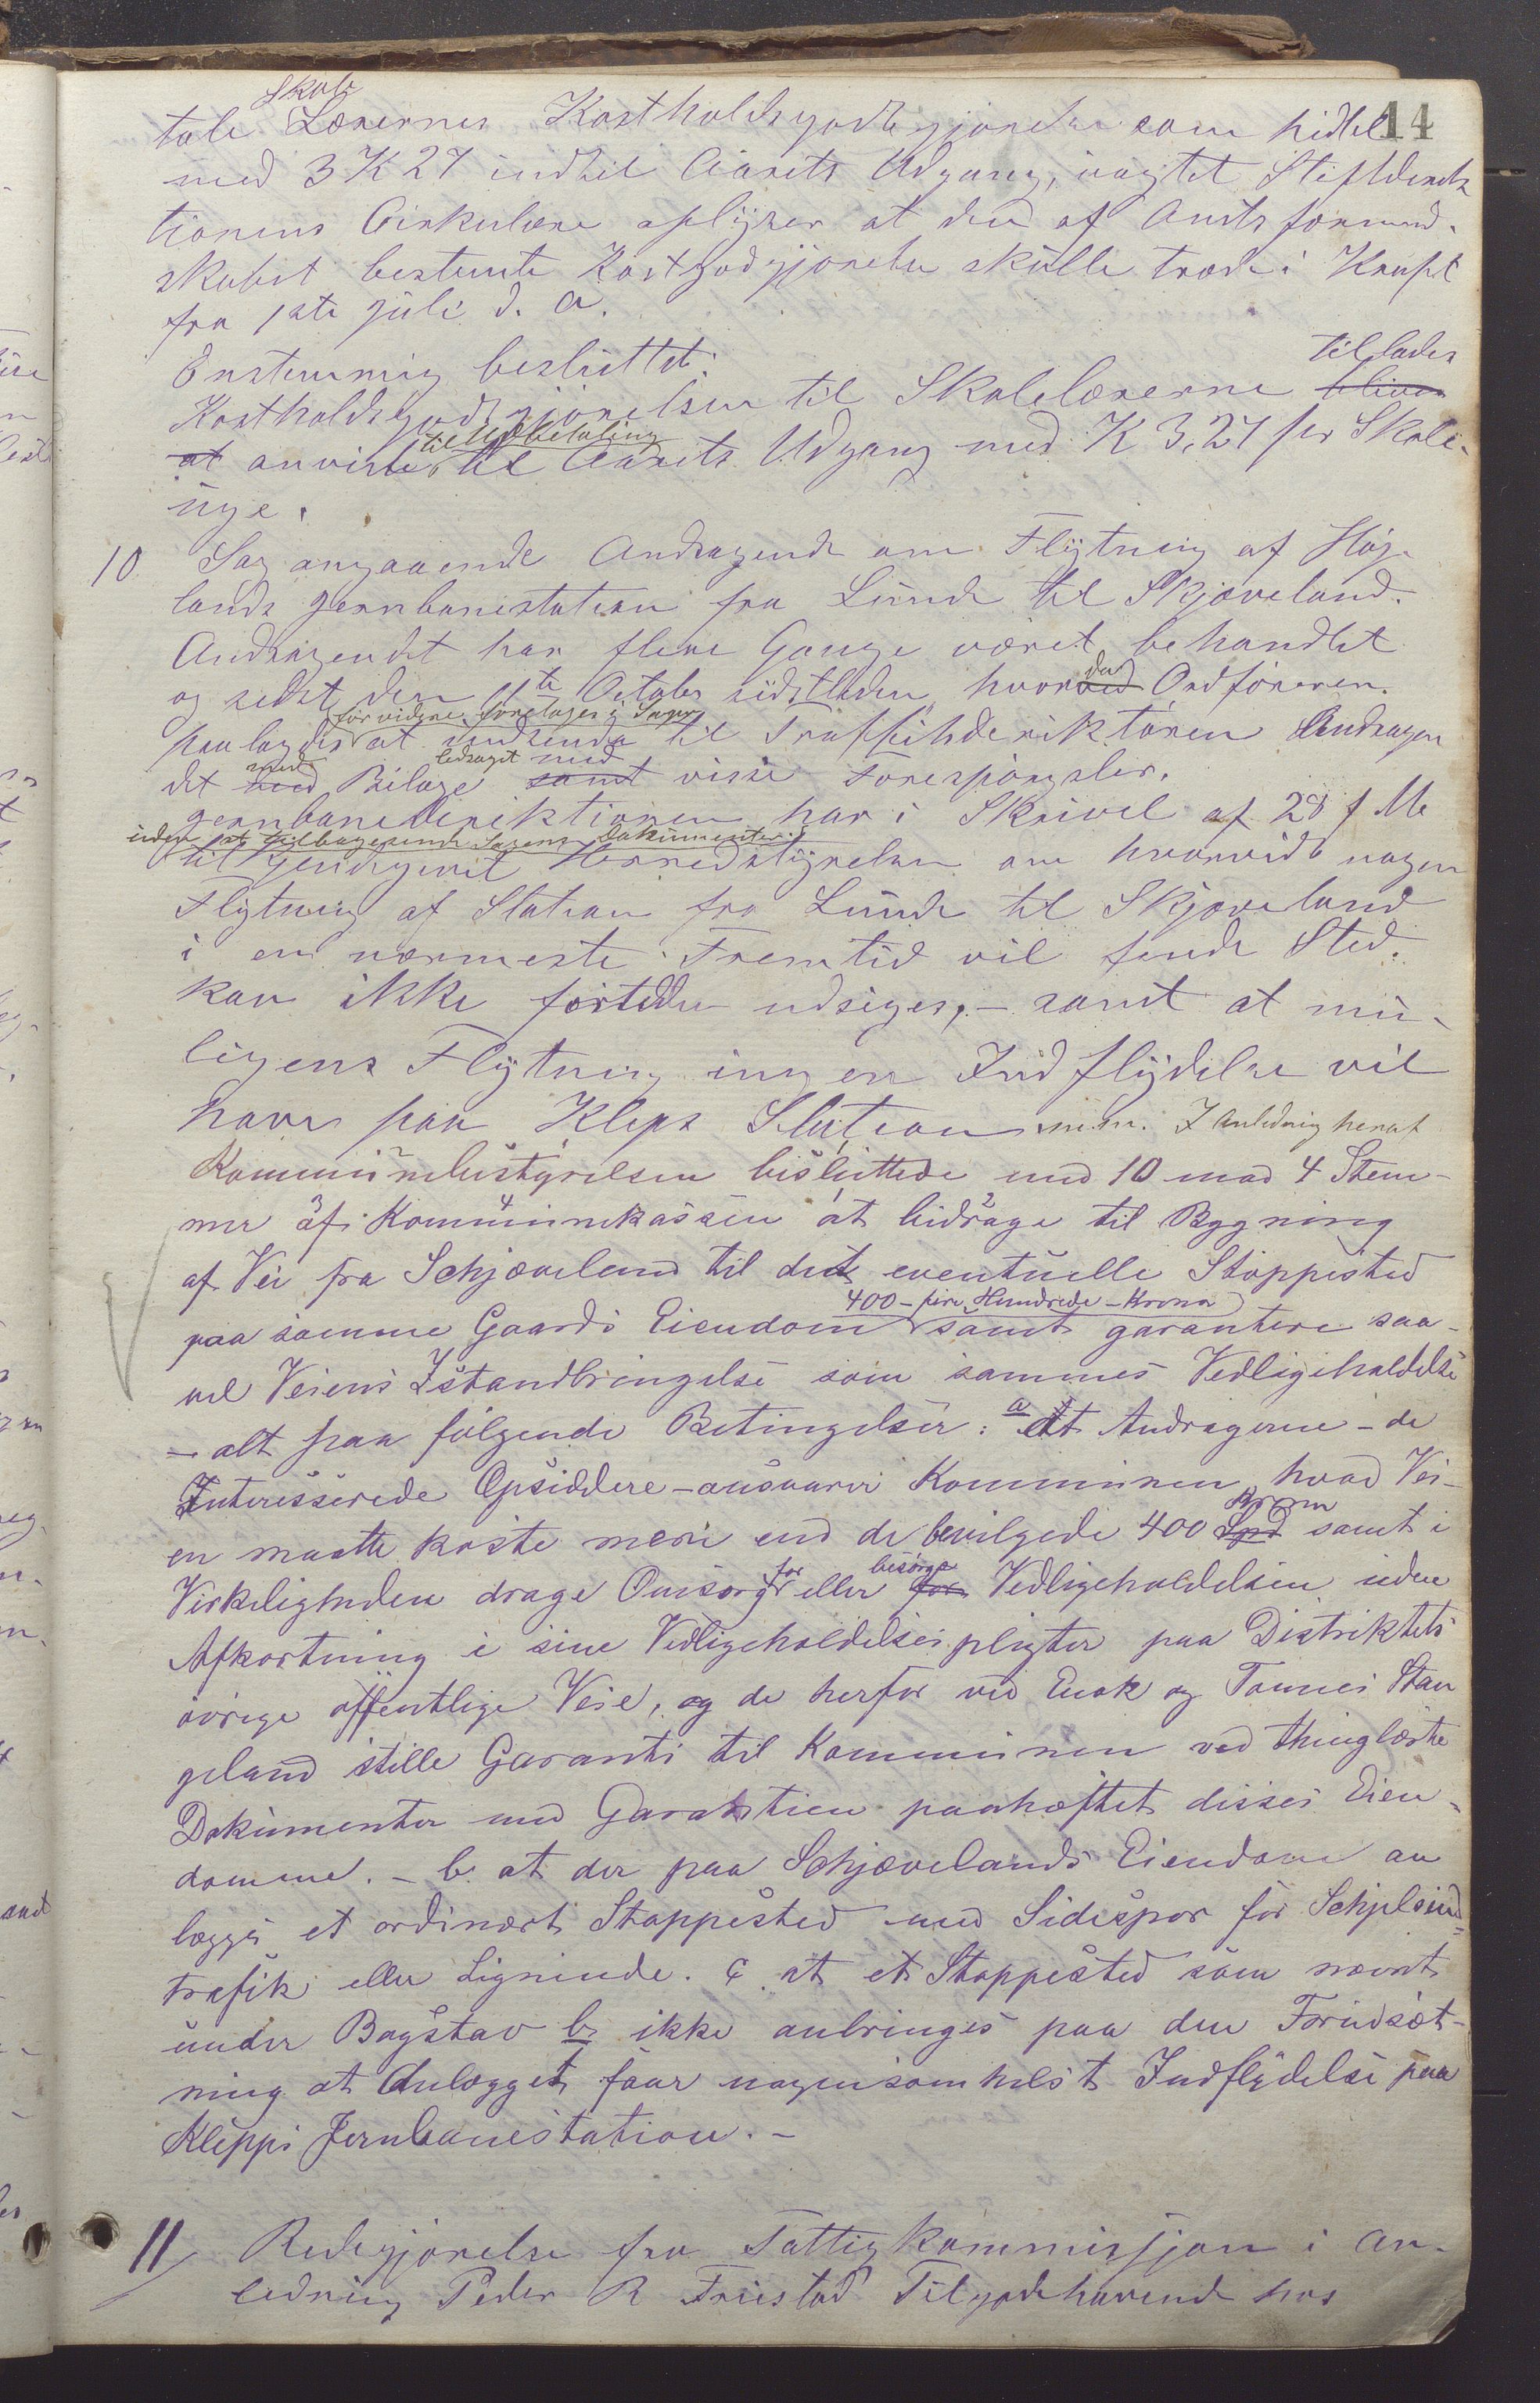 14
tale Skole Lærernes Kostholdsgodtgjörelse som hidtil
med 3 K 27 indtil Aarets Udgang, vagtet Stiftsdirek
tionens Cirkulære oplyser at den af Amtsformand-
skabet bestemte Kostgodgjörelse skulle træde i Kraft
fra 1ste juli d. A.
Enstemmig besluttet:
Kostholdsgodtgjörelsen til Skolelærerne tillades bliver
at anvist til Udbetaling til Aarets Udgang med K 3,27 per Skole-
uge.
10 Sag angaaende Andragende om Flytning af Höy-
lands jernbanestation fra Lunde til Skjæveland.
Andragendet har flere Gange været behandlet
og sidst den 11te October sidstleden, hvorved da Ordföreren
paalagdes för videre foretages i Sagen at indsende til Traffikderiktören Andragen
det med med Bilage ledsaget med samt visse Forespörgsler.
Jernbanederiktionen har i Skrivel af 28 f Me
uden at tilbagesende Sagens Dokumenter
tilkjendegivet Herredstyrelsen om hvorvidt nogen
Flytning af Station fra Lunde til Skjæveland
i en nærmeste Fremtid vil finde Sted.
kan ikke fortiden udsiges, – samt at mu-
ligens Flytning ingen Indflydelse vil
have paa Kleps Station m.m. I Anledning herat
Kommunebestyrelsen besluttede med 10 mod 4 Stem-
mer af Kommunekassen at bidrage til Bygning
af Vei fra Schjæveland til det eventuelle Stoppested
paa samme Gaards Eiendom 400 – fire Hundrede – Kroner samt garantere saa-
vel Veiens Istandbringelse som sammes Vedligeholdelse
– alt paa fölgende Betingelser: a at Andragerne – de
Interesserede Opsiddere – ansvarer Kommunen, hvad Vei-
en maatte koste mere end de bevilgede 400 Spd Kroner samt i
Virkeligheden drage Omsorg for eller besörge for Vedligeholdelsen uden
Afkortning i sine Vedligeholdelsespligter paa Distriktets
övrige offentlige Veie, og de herfor ved Enok og Tønnes Stan
geland stille Garanti til Kommunen ved thinglæste
Dokumenter med Garantien paahæftet disses Eien-
domme. – b. at der paa Schjævelands Eiendom an
lægges et ordinært Stoppested med Sidespor for Schjelsand-
trafik eller Lignende. c. at et Stoppested som nævnt
under Bogstav b. ikke anbringes paa den Forudsæt-
ning at Anlægget faar nogensomhelst Indflydelse paa
Klepps Jernbanestation. –
11 Redegjörelse fra Fattigkommissjon i An-
ledning Peder R Friestad Tilgodehavende hos